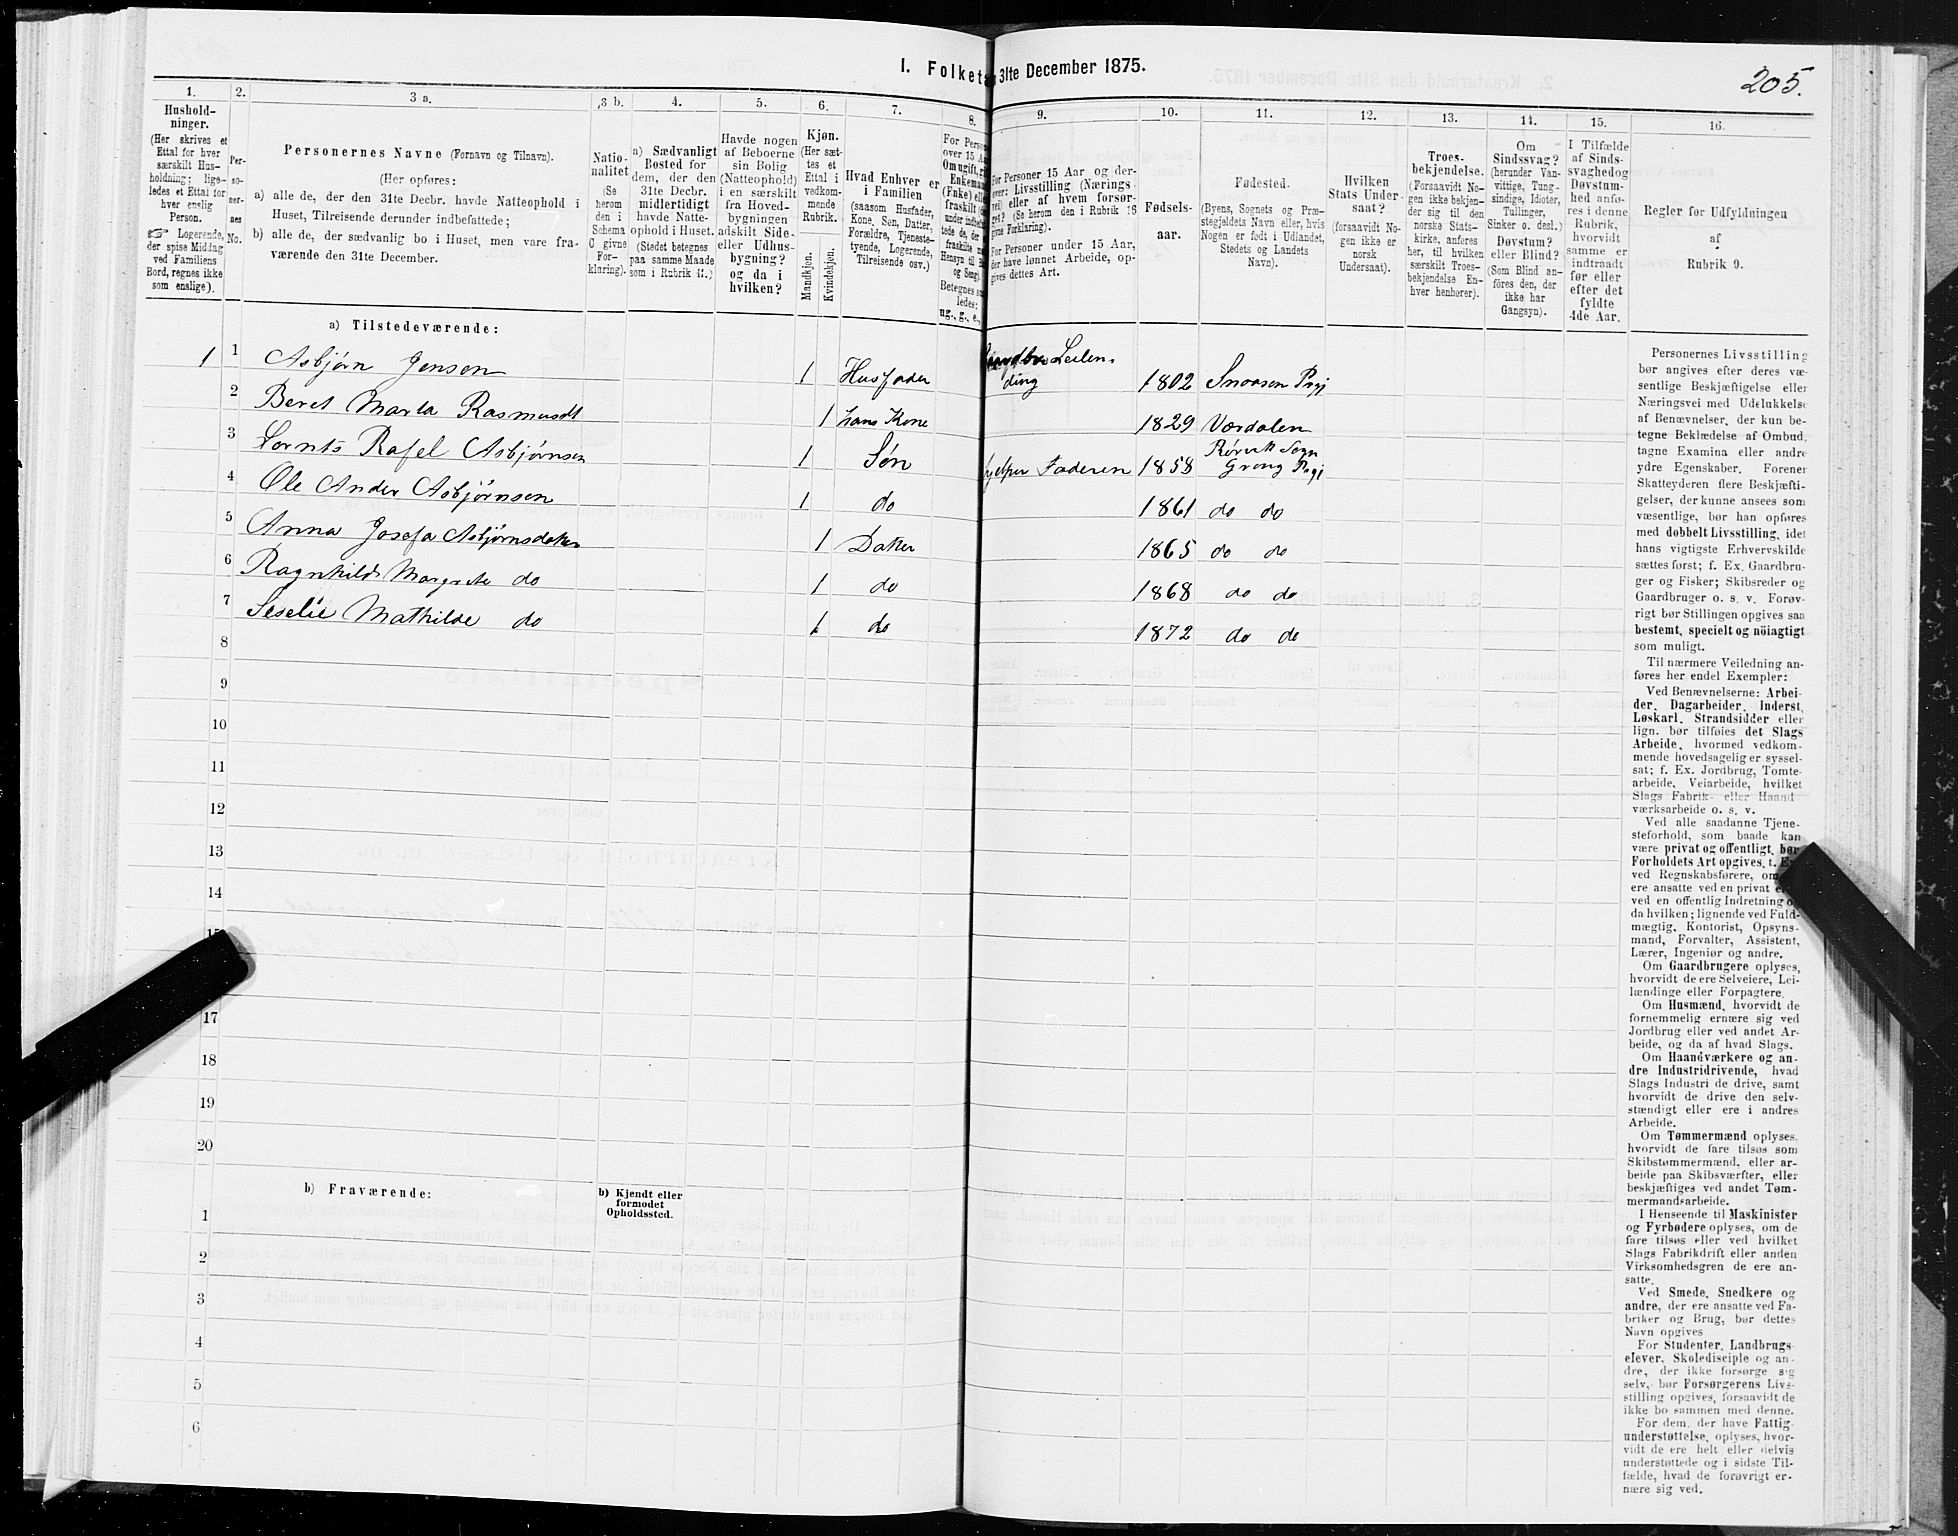 I. Folketæ 31te December 1875.
205.
1.
Hushold-
ninger.
(Her skrives et
Ettal for hver
særskilt Hus-
holdning; lige-
ledes et Ettal for
hver enslig
Person.
☞ Logerende,
der spise Middag
ved Familiens
Bord, regnes ikke
som enslige).
2.
Per-
so-
ner-
nes
No.
3 a.
Personernes Navne (Fornavn og Tilnavn).
(Her opføres:
a) alle de, der den 31te Decbr. havde Natteophold i
Huset, Tilreisende derunder indbefattede;
b) alle de, der sædvanlig bo i Huset, men vare fra-
værende den 31te December.
3 b.
Natio-
nalitet
(Se
herom
den i
Schema
C givne
For-
klaring).
4.
a) Sædvanligt
Bosted for
dem, der den
31te Decbr.
midlertidigt
havde Natte-
ophold i Huset.
(Stedet betegnes
paa samme Maade
som i Rubrik 11.)
5.
Havde nogen
af Beboerne
sin Bolig
(Natteophold)
i en særskilt
fra Hoved-
bygningen
adskilt Side-
eller Udhus-
bygning?
og da i
hvilken?
6.
Kjøn.
(Her sæt-
tes et
Ettal i
vedkom-
mende
Rubrik.
Mandkjøn.
Kvindekjøn.
7.
Hvad Enhver er
i Familien
(saasom Husfader,
Kone, Søn, Datter,
Forældre, Tjeneste-
tyende, Logerende,
Tilreisende osv.)
8.
For Person
over 15 Aa
Om ugift, gi
Enkeman
(Enke) elle
fraskilt
ledes:
ug., g., e.,
9.
For Personer 15 Aar og der-
over: Livsstilling (Nærings
vei) eller af hvem forsør-
get? (Se herom den i Rubrik 16
givne Forklaring).
For Personer under 15 Aar,
der have lønnet Arbeide, op-
gives dettes Art.
10.
Fødsels-
aar.
11.
Fødested.
(Byens, Sognets og Præ-
stegjeldets Navn eller, hvis
Nogen er født i Udlandet,
Stedets og Landets
Navn).
12.
Hvilken
Stats Under-
saat?
(forsaavidt No-
gen ikke er
norsk
Undersaat).
13.
Troes-
bekjendelse.
(Forsaavidt No-
gen ikke bekjen-
der sig til den
norske Stats-
kirke, anføres
her, til hvilken
særskilt Troes-
bekjendelse En-
hver henhører).
14.
Om
Sindssvag?
(herunder Van-
vittige, Tung-
sindige, Idioter,
Tullinger,
Sinker o. desl.)
Døvstum?
eller Blind?
(Som Blind an-
føres den, der
ikke har
Gangsyn).
15.
I Tilfælde
af Sinds-
svaghed og
Døvstum-
hed anfø-
res i denne
Rubrik,
hvorvidt
samme er
indtraadt
før eller
efter det
fyldte
4de Aar.
16.
Regler for Udfyldningen
af
Rubrik 9.
a) Tilstedeværende:
1 1 Asbjørn Jensen 1 Husfader Leilen-
ding 1802 Snaasen Prgj
2 Beret Marta Rasmusdt 1 hans Kone 1829 Værdalen
3 Lornts Rafel Asbjørnsen 1 Søn hjelper Faderen 1858 Rørvik Sogn
Grong Prgj
4 Ole Ander Asbjørnsen 1 do 1861 do do
5 Anna Josefa Asbjørnsdatter 1 Datter 1865 do do
6 Ragnhild Margrete do 1 do 1868 do do
7 Seselie Mathilde do 1 do 1872 do do
8
9
10
11
12
13
14
15
17
18
19
20
b) Fraværende:
b) Kjendt eller
formodet
Opholdssted.
1
2
3
4
5
6
Personernes Livsstilling
bør angives efter deres væ-
sentlige Beskjæftigelse eller
Næringsvei med Udelukkelse
af Benævnelser, der kun be-
tegne Beklædelse af Ombud,
tagne Examina eller andre
ydre Egenskaber. Forener
Skatteyderen flere Beskjæfti-
gelser, der kunne ansees som
væsentlige, bør han opføres
med dobbelt Livsstilling, idet
hans vigtigste Erhvervskilde
sættes først; f. Ex. Gaardbru-
ger og Fisker; Skibsreder og
Gaardbruger o. s. v. Forøv-
rigt bør Stillingen opgives saa
bestemt, specielt og nöiagtigt
som muligt.
Til nærmere Veiledning an-
føres her endel Exempler:
Ved Benævnelserne: Arbei-
der, Dagarbeider, Inderst,
Løskarl, Strandsidder eller
lign. bør tilføies det Slags
Arbeide, hvormed vedkom-
mende hovedsagelig er syssel-
sat; f. Ex. Jordbrug, Tomte-
arbeide, Veiarbeide, hvilket
Slags Fabrik- eller Haand-
værksarbeide o. s. v.
Ved alle saadanne Tjene-
steforhold, som baade kan
være privat og offentligt, bør
Forholdets Art opgives, t. Ex
ved Regnskabsførere, om
ere ansatte ved en privat el
ved en offentlig Indretning o
da hvilken; lignende ved Fuld-
mægtig, Kontorist, Opsyns-
mand, Forvalter, Assistent,
Lærer, Ingeniør og andre.
Om Gaardbrugere oplyses,
hvorvidt de ere Selveiere, Lei-
lændinge eller Forpagtere.
Om Husmænd, hvorvidt de
fornemmelig ernære sig ved
Jordbrug eller ved andet Ar-
beide, og da af hvad Slags.
Om Haandværkere og an-
dre Industridrivende, hvad
Slags Industri de drive, samt
hvorvidt de drive den selv-
stændigt eller ere i andres
Arbeide.
Om Tømmermænd oplyses,
hvorvidt de fare tilsøs som
Skibstømmermænd, eller ar-
beide paa Skibsværfter, eller
beskjæftiges ved andet Tøm-
mermandsarbeide.
I Henseende til Maskinister
og Fyrbødere oplyses, om de
fare tilsøs eller ved hvilket
Slags Fabrikdrift eller anden
Virksomhedsgren de ere an-
satte.
Ved Smede, Snedkere og
andre, der ere ansatte ved Fa-
briker og Brug, bør dettes
Navn opgives
For Studenter, Landbrugs-
elever, Skoledisciple og an-
dre, der ikke forsørge sig
selv, bør Forsørgerens Livs-
stilling opgives, forsaavidt de
ikke bo sammen med denne.
For dem, der have Fattig-
understøttelse, oplyses, hvor-
vidt de ere helt eller delvis
understøttede og i sidste Til-
fælde, hvad de forøvrigt er-
nære sig ved.